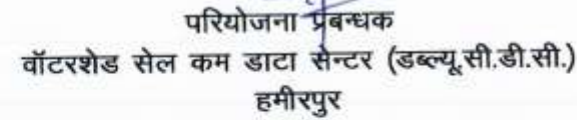 परियोजना प्रबन्धक
वॉटरशेड सेल कम डाटा सेन्टर (डब्ल्यू.सी.डी.सी.)
हमीरपुर